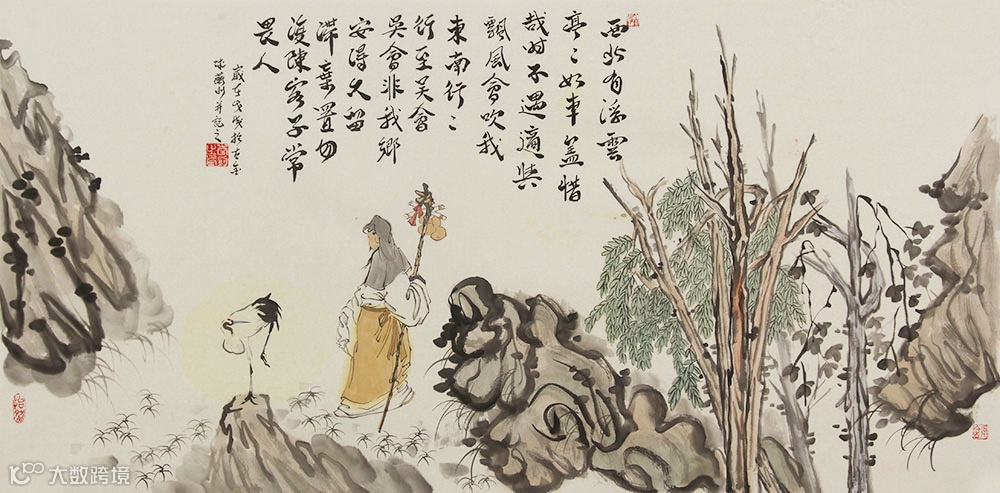 西北有浮雲
亭〻如車盖惜
哉时不遇適與
飄風會吹我
東南行〻
行至吴會
吴會非我鄉
安得久留
滞棄置勿
復陳客子常
畏人
歲在戊戌於
并記之
大数跨境